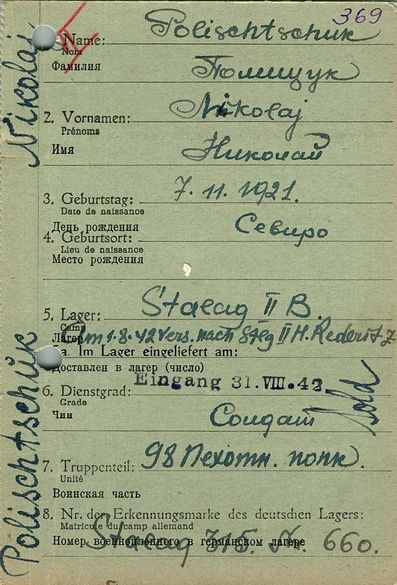 369
1. Name: Polischtschuk
Nom
Фамилия Полищук
2. Vornamen: Nikolaj
Prénoms
Имя Николай
3. Geburtstag: 7.11.1921.
Date de naissance
День рождения
4. Geburtsort: Севиро
Lieu de naissance
Место рождения
5. Lager: Stalag II B.
Camp
Лагерь Am 1.8.42 vers. nach Stlg II H.
a. Im Lager eingeliefert am:
доставлен в лагерь (число)
Eingang 31. VIII. 42
6. Dienstgrad: Sold
Grade
Чин Солдат
7. Truppenteil: 98 Пехотн. полк.
Unité
Воинская часть
8. Nr. der Erkennungsmarke des deutschen Lagers:
Matricule du camp allemand
Номер военнопленного в германском лагере
Stalag 315. Nr. 660.
Polischtschuk Nikolaj